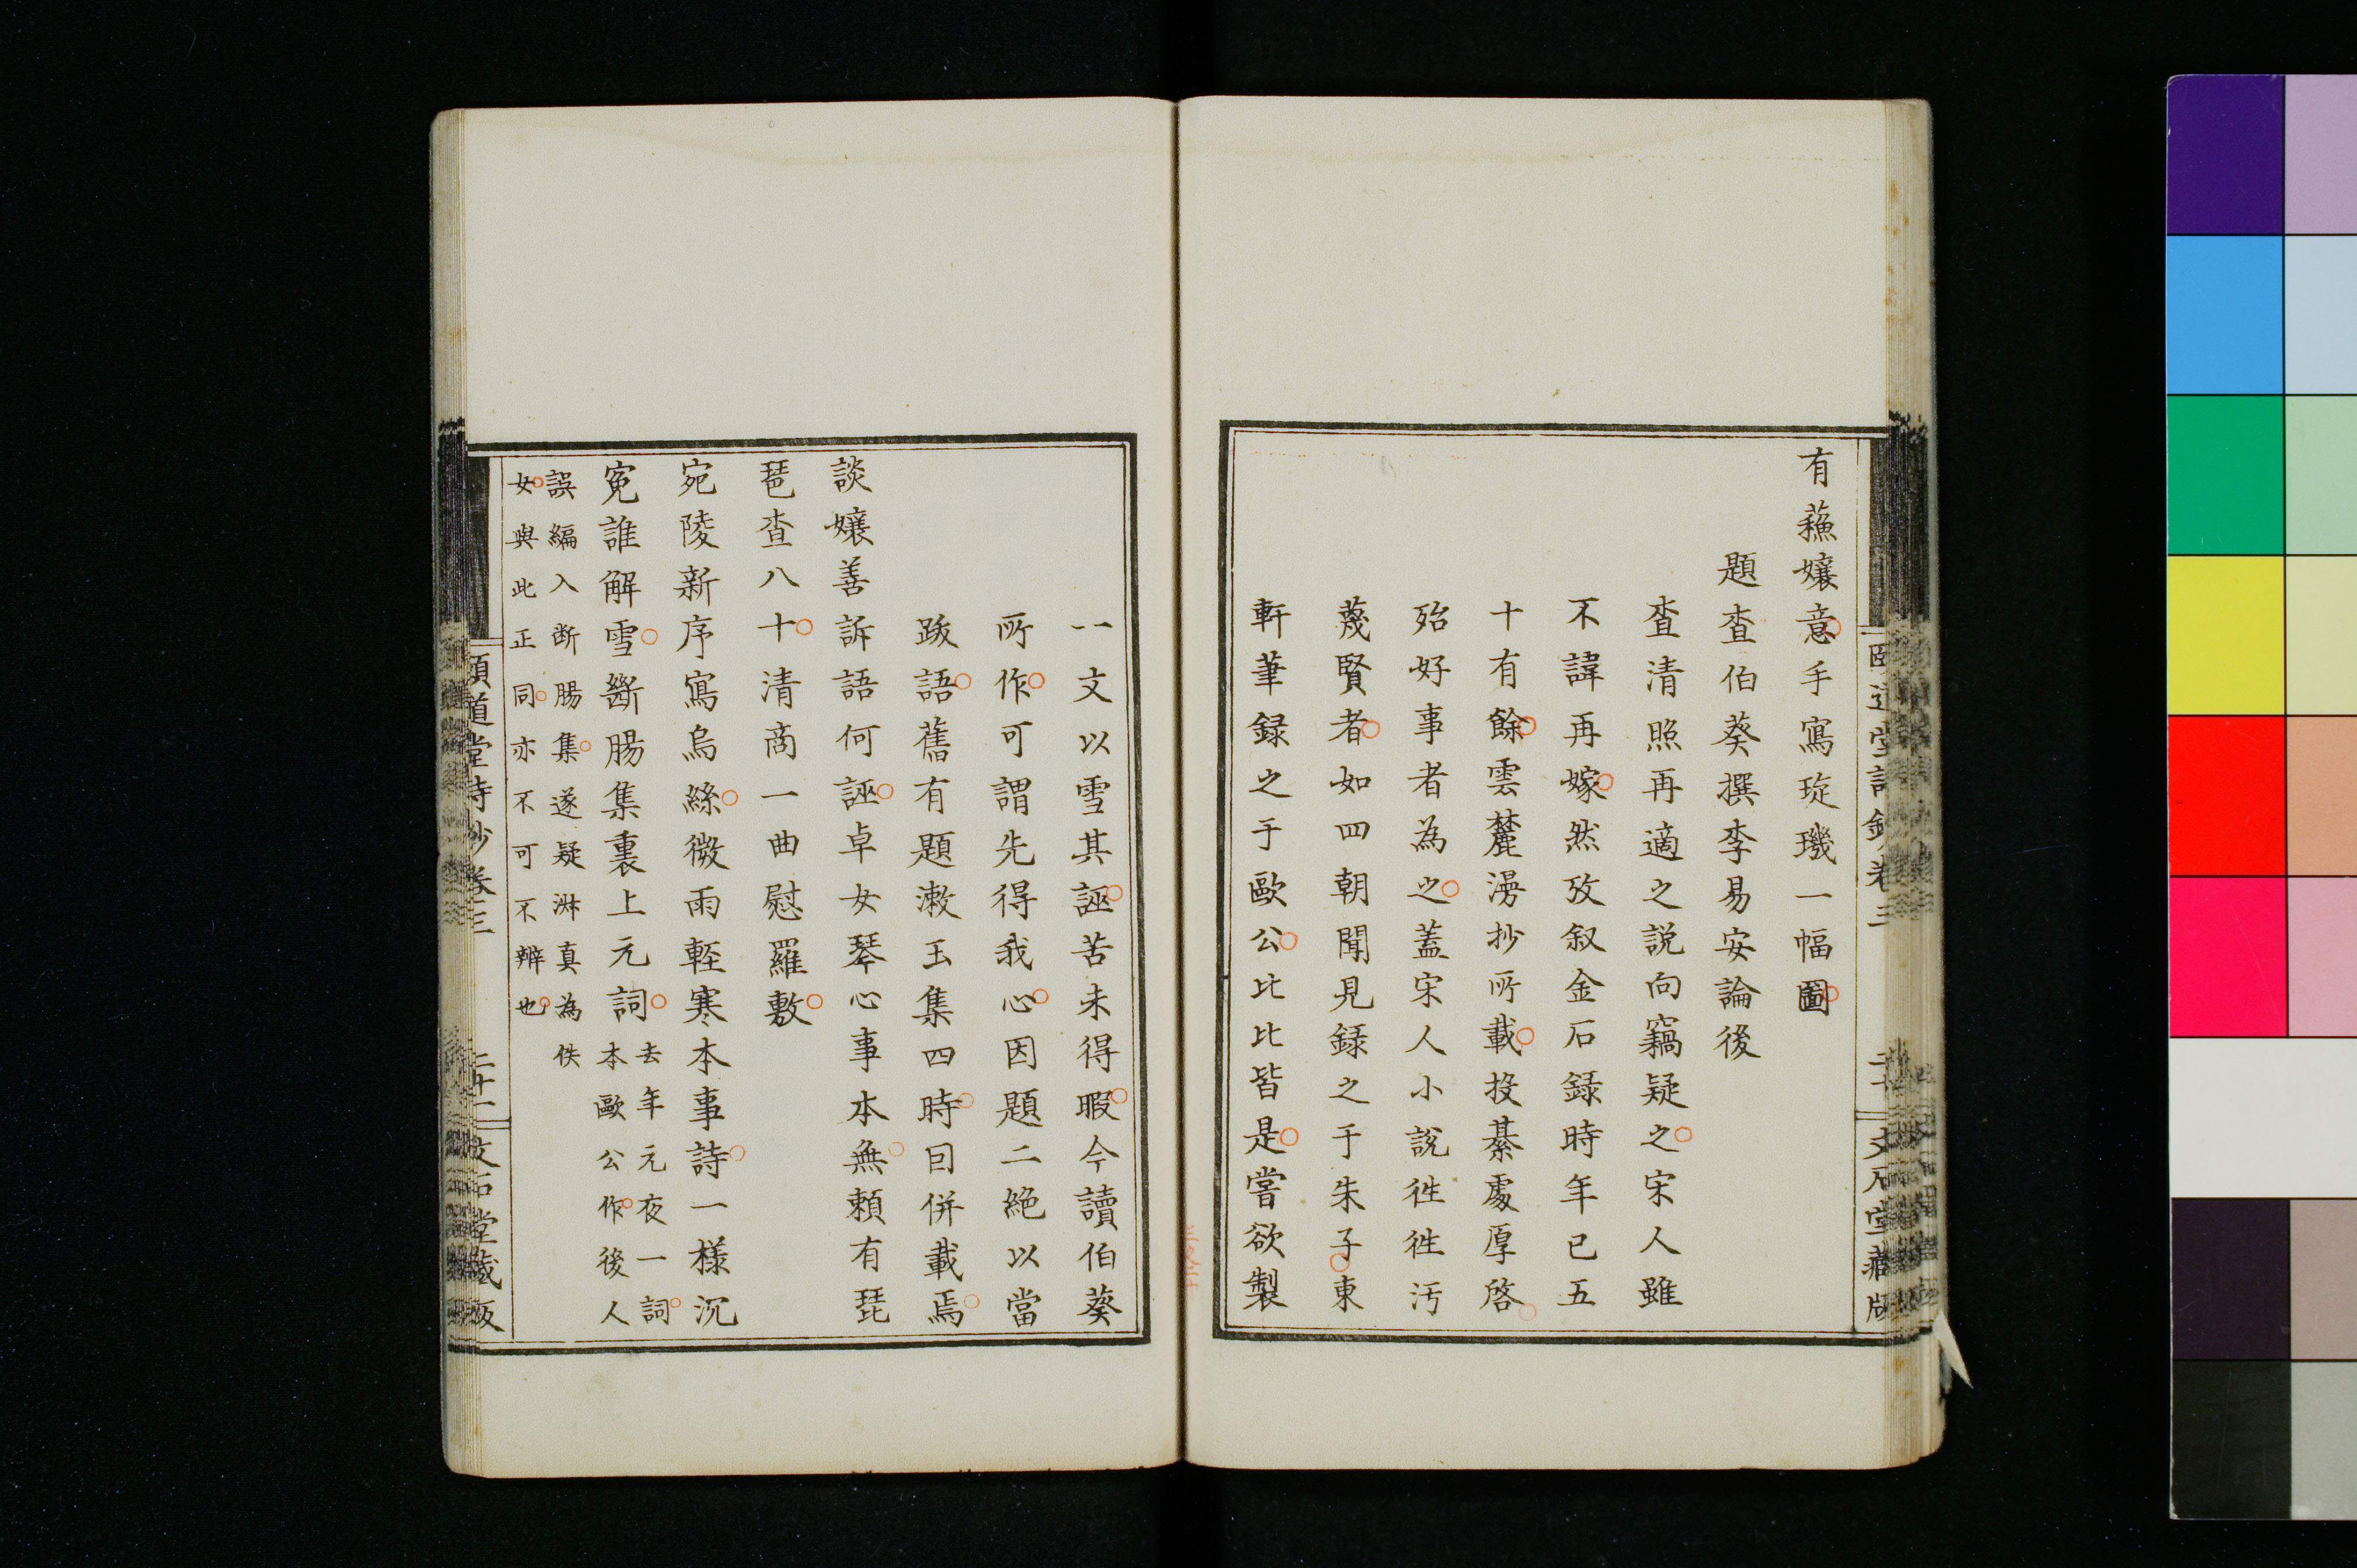 有蘓孃意手寫琁璣一幅圖
題查伯葵撰李易安論後
査清照再適之説向竊疑之宋人雖
不諱再嫁然攷叙金石録時年已五
十有餘雲麓漫抄所載投綦處厚啓
殆好事者為之蓋宋人小說徃徃汚
蔑賢者如四朝聞見録之于朱子東
軒筆録之于歐公比比皆是嘗欲製
一文以雪其誣苦未得暇今讀伯葵
所作可謂先得我心因題二絶以當
跋語舊有題漱玉集四時囙併載焉
談孃善訴語何誣卓女琴心事本無賴有琵
琶查八十清商一曲慰羅敷
宛陵新序寫烏絲微雨輕寒本事詩一樣沉
寃誰解雪斷腸集裏上元詞
去年元夜一詞
本歐公作後人
誤編入断腸集遂疑淋真為佚
女與此正同亦不可不辨也
頤道堂詩鈔卷三
二十一
文石堂藏版